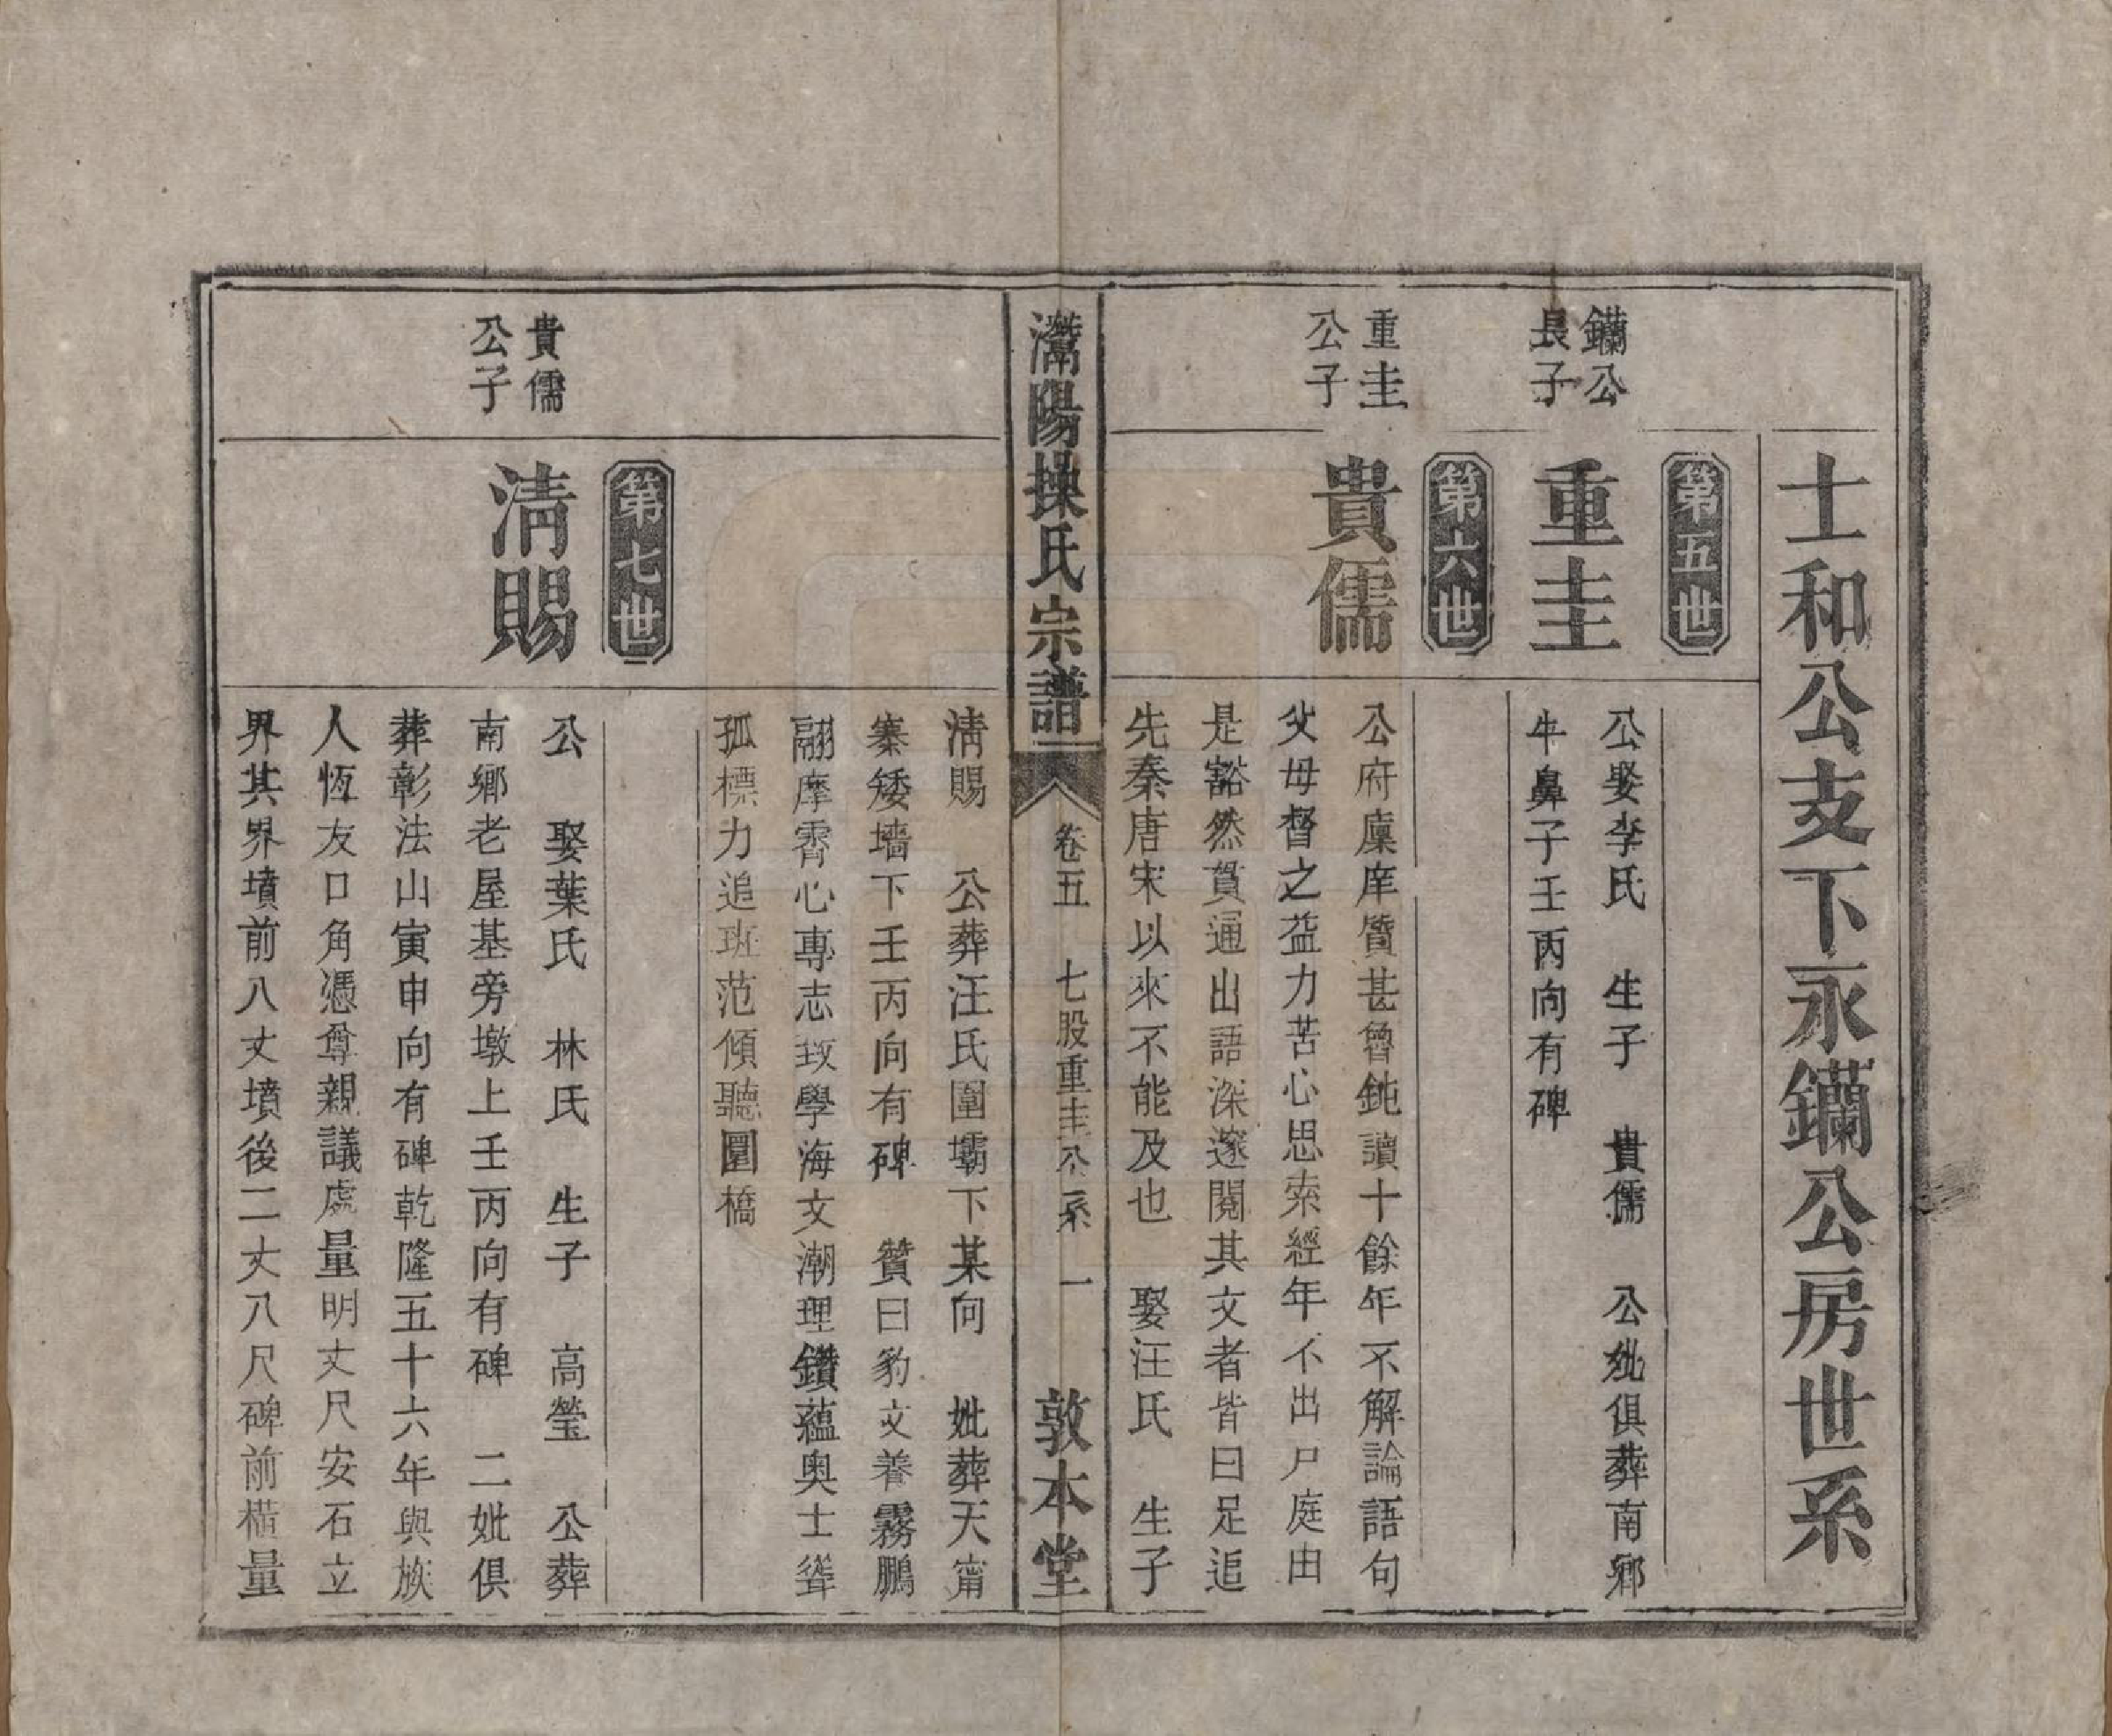 士和公支下永鑭公房世系
第五世
鑭公
長子
重圭
公娶李氏　生子　貴儒　公妣俱葬南鄉
牛鼻子壬丙向有碑
第六世
重圭
公子
貴儒
公府廩庠質甚魯鈍讀十餘年不解論語句
父母督之益力苦心思索經年不出戸庭由
是豁然貫通出語深邃閱其文者皆曰足追
先秦唐宋以來不能及也　娶汪氏　生子
灊陽操氏宗譜
卷五　七股重圭公系　一
敦本堂
清賜　公葬汪氏圍壩下某向　妣葬天甯
寨矮墻下壬丙向有碑　贊曰豹文養霧鵬
翮摩霄心專志致學海文潮理鑽蘊奥士聳
孤標力追班范傾聽圜橋
第七世
貴儒
公子
清賜
公　娶葉氏　林氏　生子　高瑩　公葬
南鄉老屋基旁墩上壬丙向有碑　二妣俱
葬彰法山寅申向有碑乾隆五十六年與族
人恆友口角憑尊親議處量明丈尺安石立
界其界墳前八丈墳後二丈八尺碑前橫量